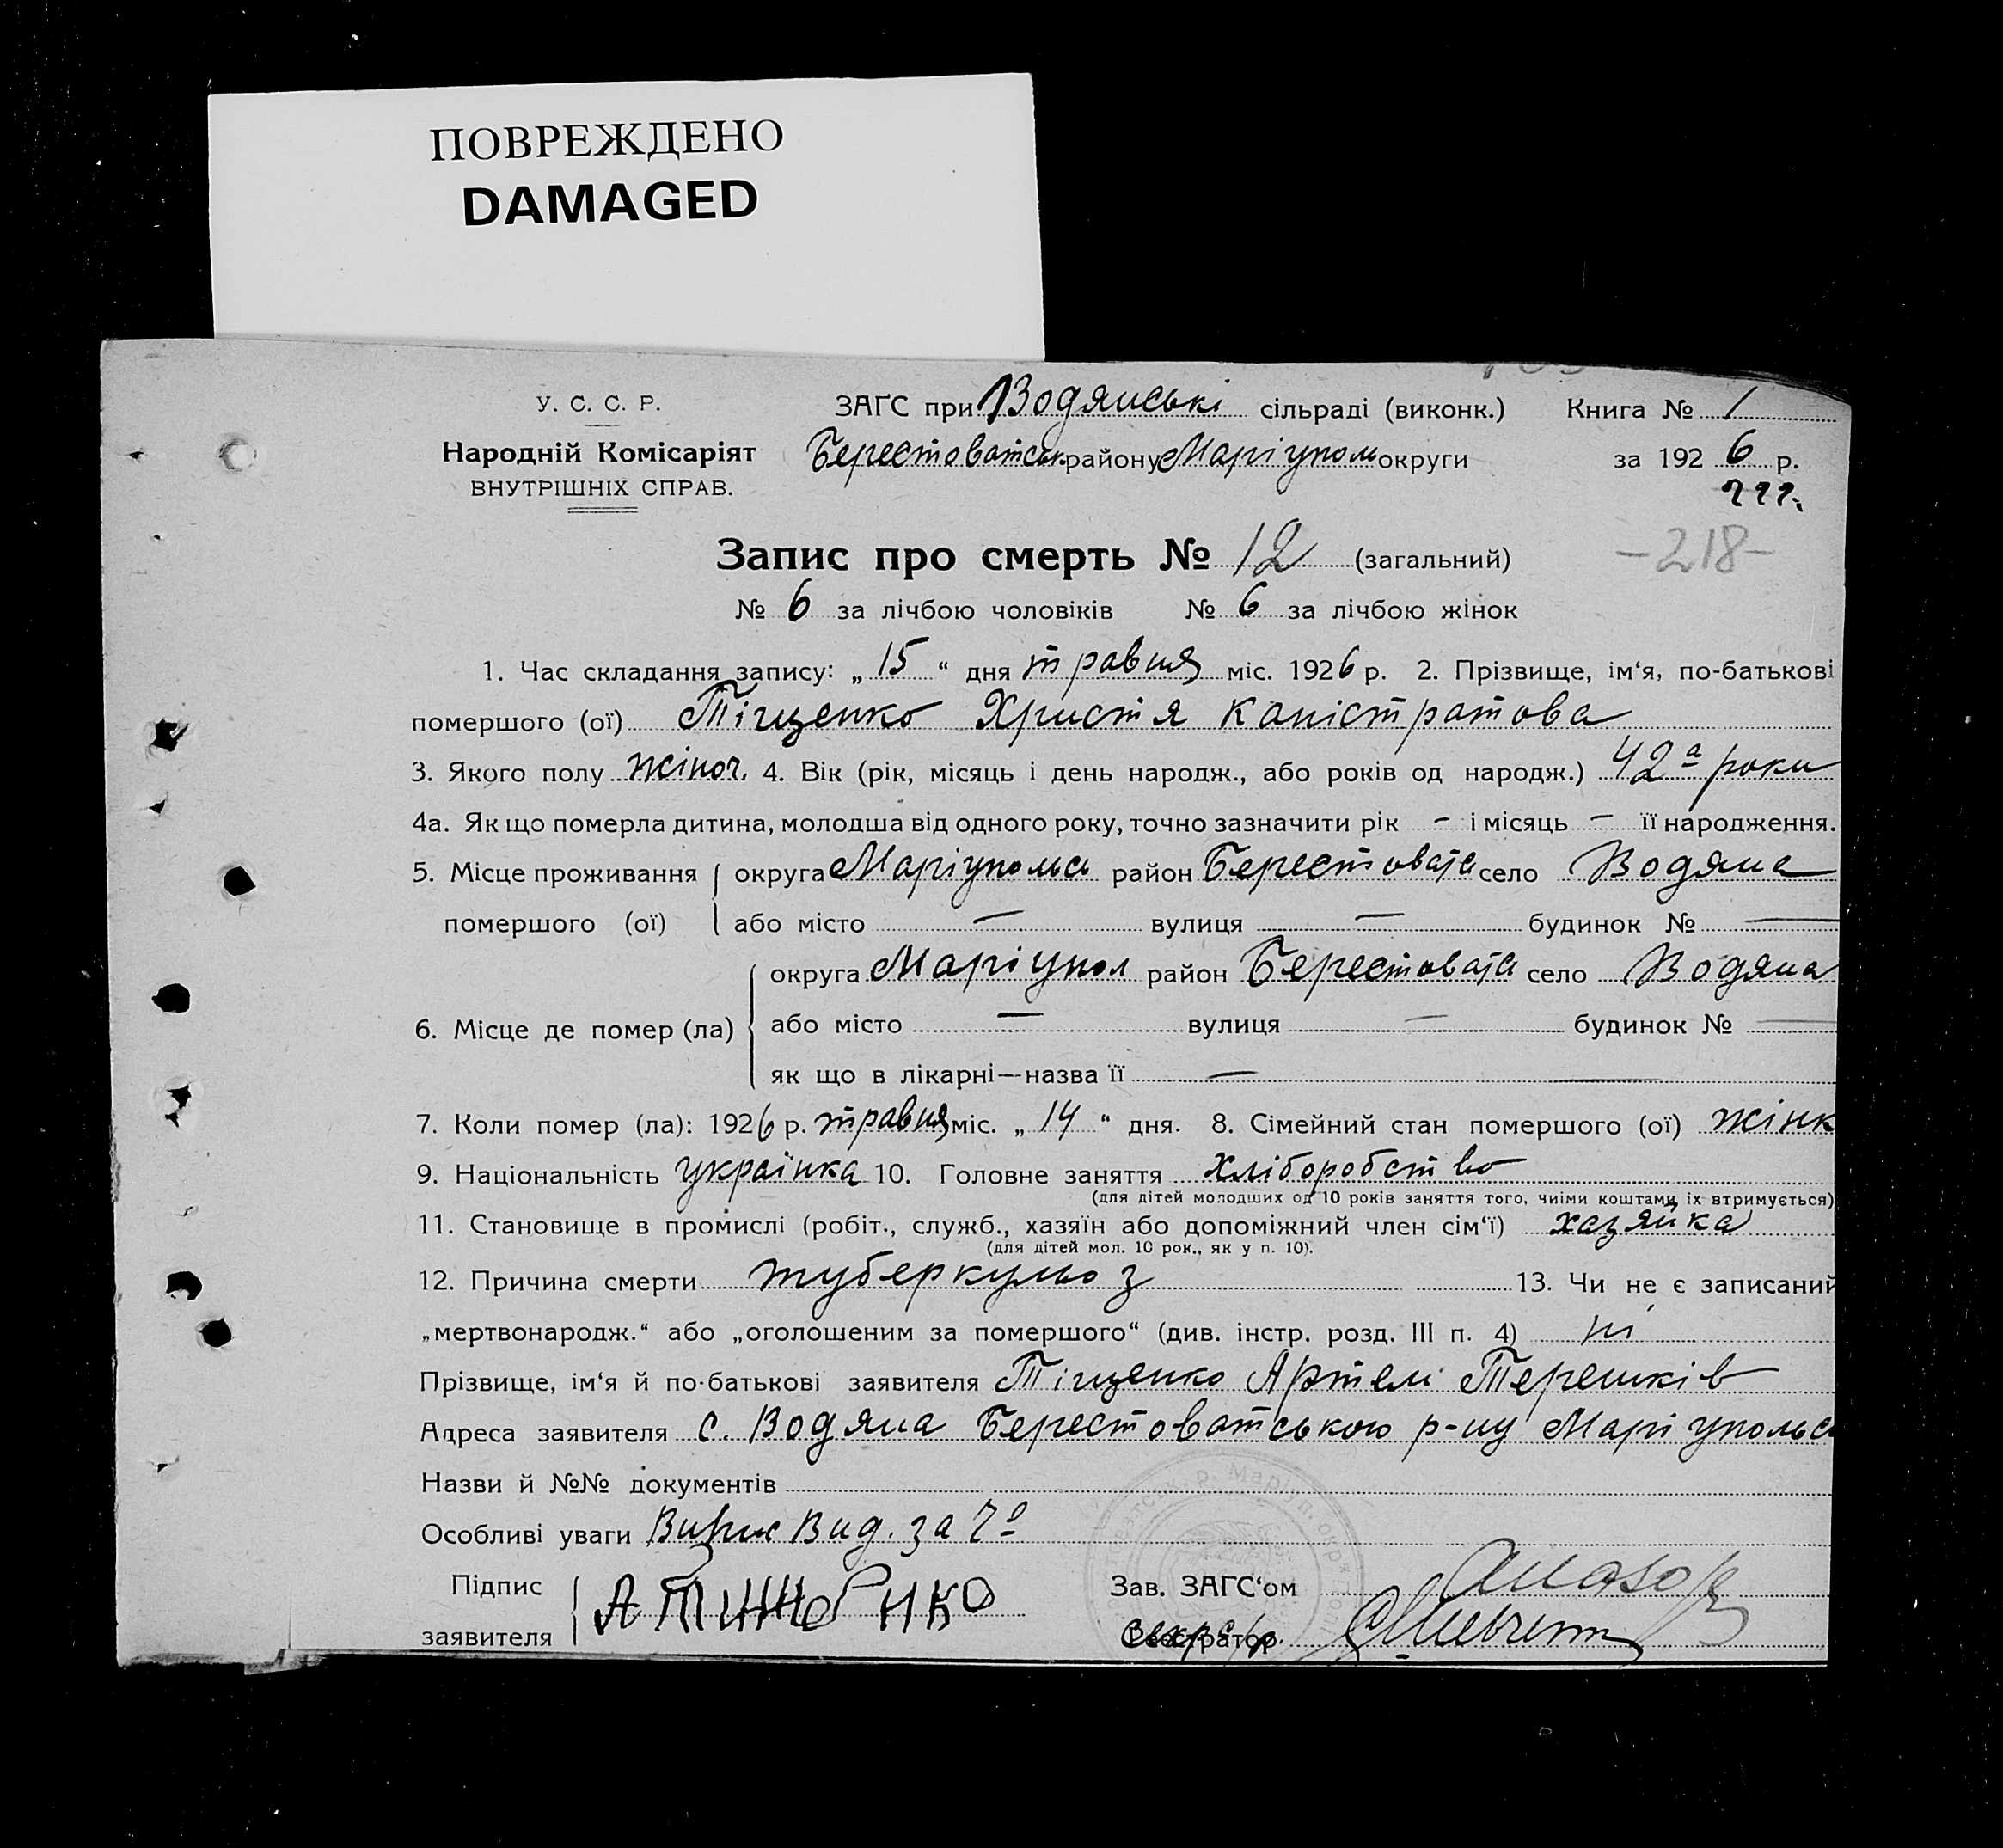 ПОВРЕЖДЕНО
DAMAGED
У. С. С. Р.
Народній Комісаріят
ВНУТРІШНІХ СПРАВ.
ЗАГС при Водянські сільраді (виконк.) Книга № 1
Берестоватськ. району Маріупол округи за 1926 р.
Запис про смерть № 12 (загальний) -218-
№ 6 за лічбою чоловіків № 6 за лічбою жінок
1. Час складання запису: „15“ дня травня міс. 1926 р. 2. Прізвище, ім‘я, по-батькові
помершого (ої) Тіщенко Христя Каністратова
3. Якого полу жіноч. 4. Вік (рік, місяць і день народж., або років од народж.) 42а роки
4а. Як що померла дитина, молодша від одного року, точно зазначити рік - і місяць - її народження.
5. Місце проживання округа Маріупольсь район Берестовата село Водяна
помершого (ої) або місто — вулиця — будинок № —
округа Маріупол район Берестовата село Водяна
6. Місце де помер (ла) або місто — вулиця — будинок № —
як що в лікарні—назва її —
7. Коли помер (ла): 1926 р. травня міс. „14“ дня. 8. Сімейний стан помершого (ої) жінк
9. Національність українка 10. Головне заняття хліборобство
(для дітей молодших од 10 років заняття того, чиїми коштами їх втримується)
11. Становище в промислі (робіт., служб., хазяїн або допоміжний член сім‘ї) хазяйка
(для дітей мол. 10 рок., як у п. 10).
12. Причина смерти туберкульоз 13. Чи не є записаний
„мертвонародж.“ або „оголошеним за помершого“ (див. інстр. розд. III п. 4) ні
Прізвище, ім‘я й по-батькові заявителя Тіщенко Артем Терешків
Адреса заявителя с. Водяна Берестоватського р-ну Маріупольс
Назви й №№ документів
Особливі уваги вид. за
Підпис
заявителя
Зав. ЗАГС‘ом
Реєстратор